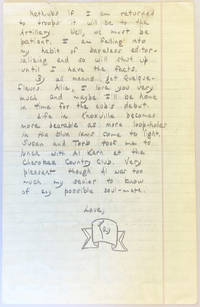 if I am returned
to troops it will be to the
Artillery. Well, we must be
patient. I am falling into
my habit of baseless editor-
ializing and so will shut up
until I have the facts.
By all means, get
Fleurs Alia, I love you very
much and maybe I'll be home
in time for the cub's debut.
Life in Knoxville becomes
more bearable as more loopholes
in the blue laws come to light.
Susan and Torb took me to
lunch with Al Kern at the
Cherokee Country Club. Very
pleasant though Al was too
much my senior to know
of any possible soul-mate.
Love,